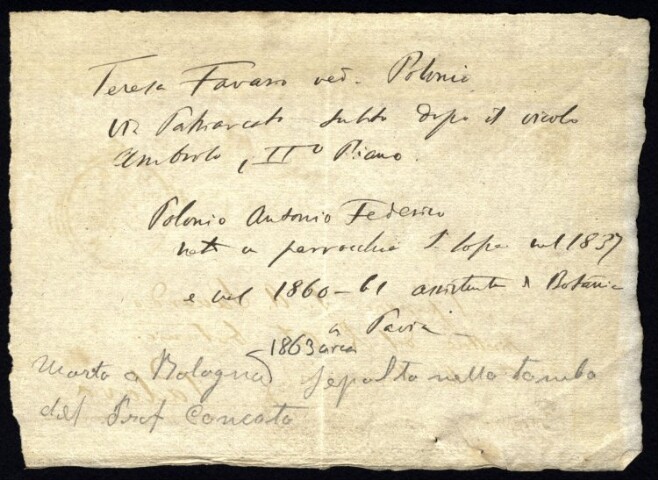 Teresa Favaro ved. Polonio
via Patriarcato subito dopo il vicolo
Ambrolo, IIº Piano.
Polonio Antonio Federico
nato a parrocchia S. Sofia nel 1837
e nel 1860-61 assistente di Botanica
a Pavia
1863 circa
Morto a Bologna sepolto nella tomba
del Prof Concato